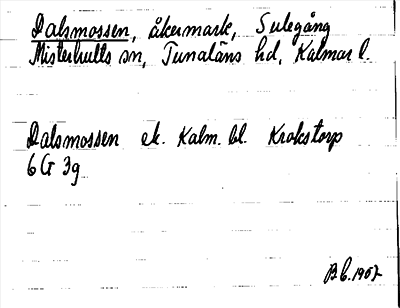 Dalsmossen, åkermark, Sulegång
Misterhults sn, Tunaläns hd, Kalmar l.
Dalsmossen ek. Kalm. bl. Krokstorp
6 G 3g
B.C. 1967